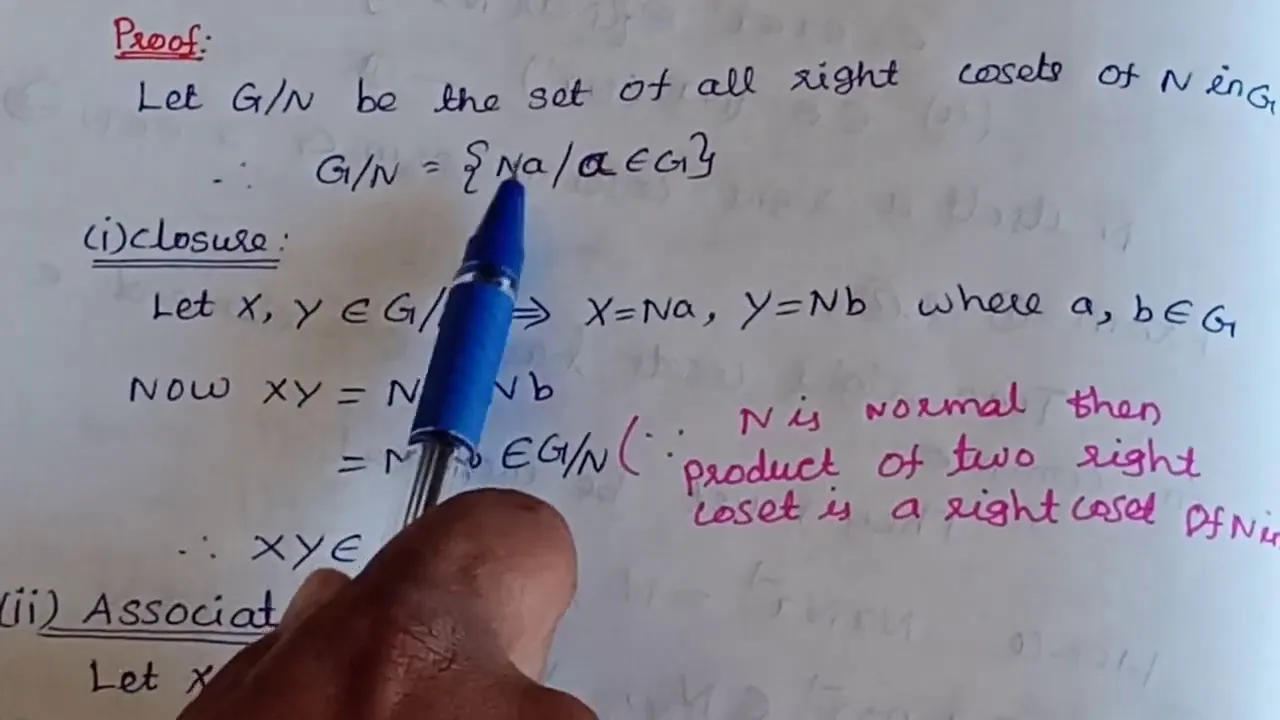 Proof:
Let G/N be the set of all right cosets of N in G
∴ G/N = {Na/a∈G}
(i) closure:
Let X, Y ∈ G/ ⇒ X=Na, Y=Nb where a, b∈G
Now XY = N Nb
= N ∈G/N (∵ N is normal then
product of two right
coset is a right coset of N in
∴ XY∈
(ii) Associat
Let X